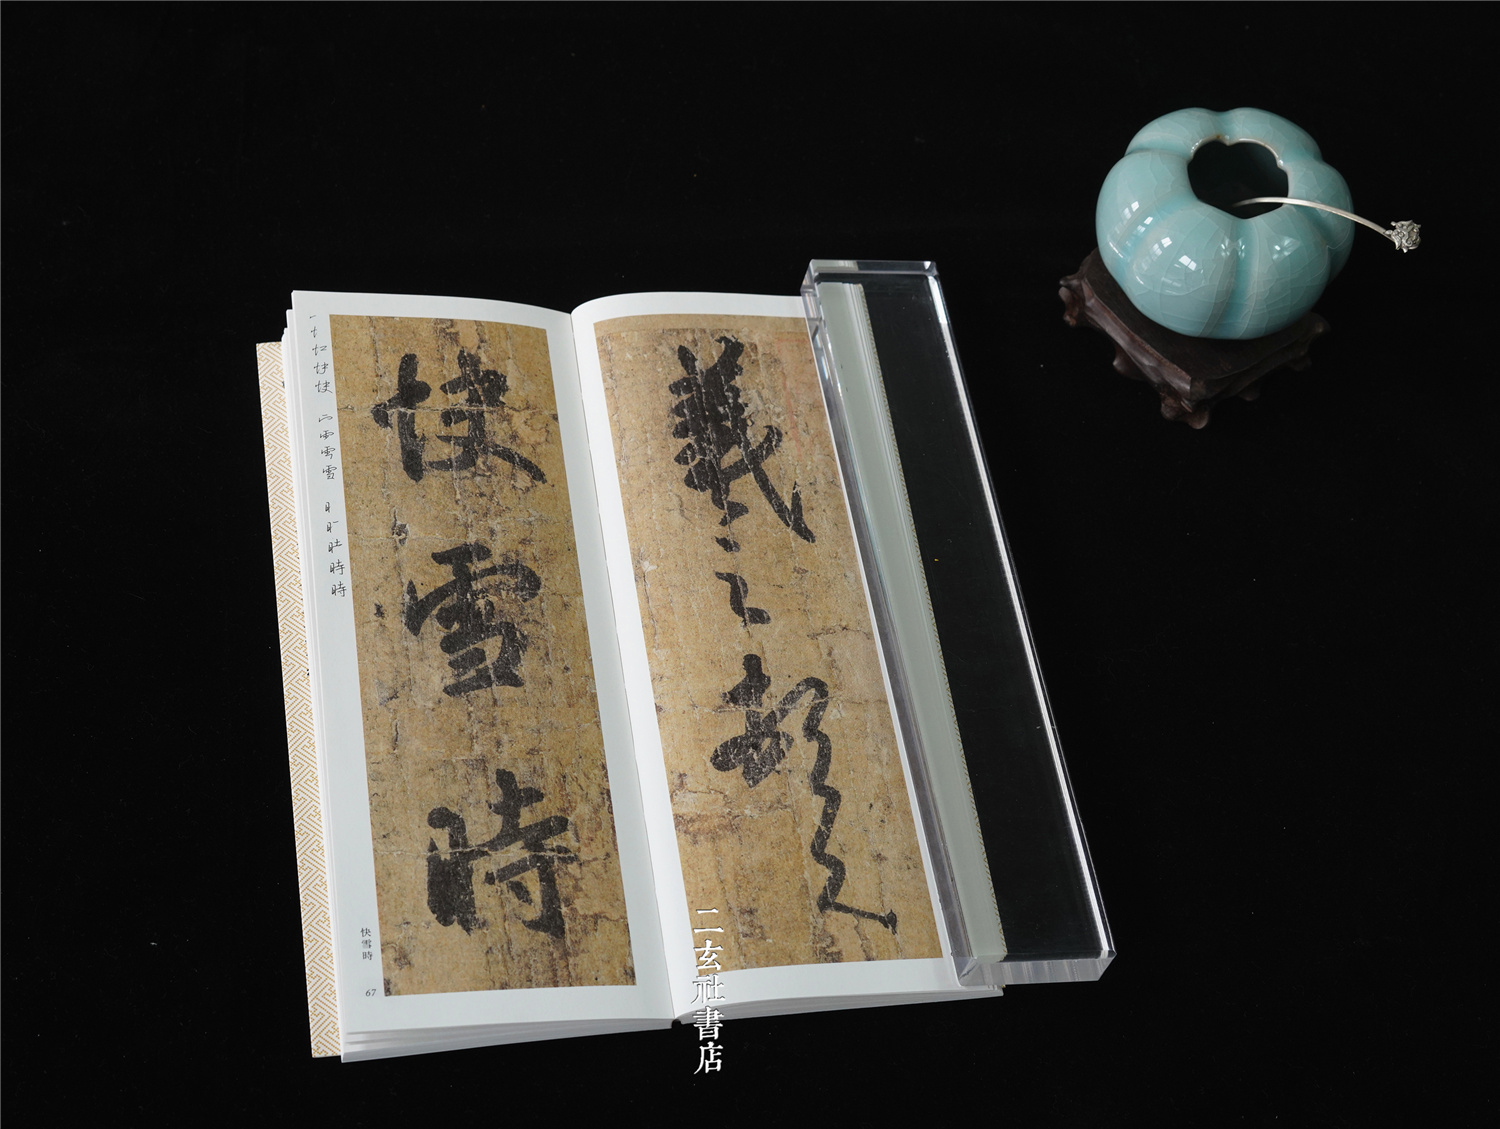 羲之頓
快雪時
快雪時
67
二玄社書店